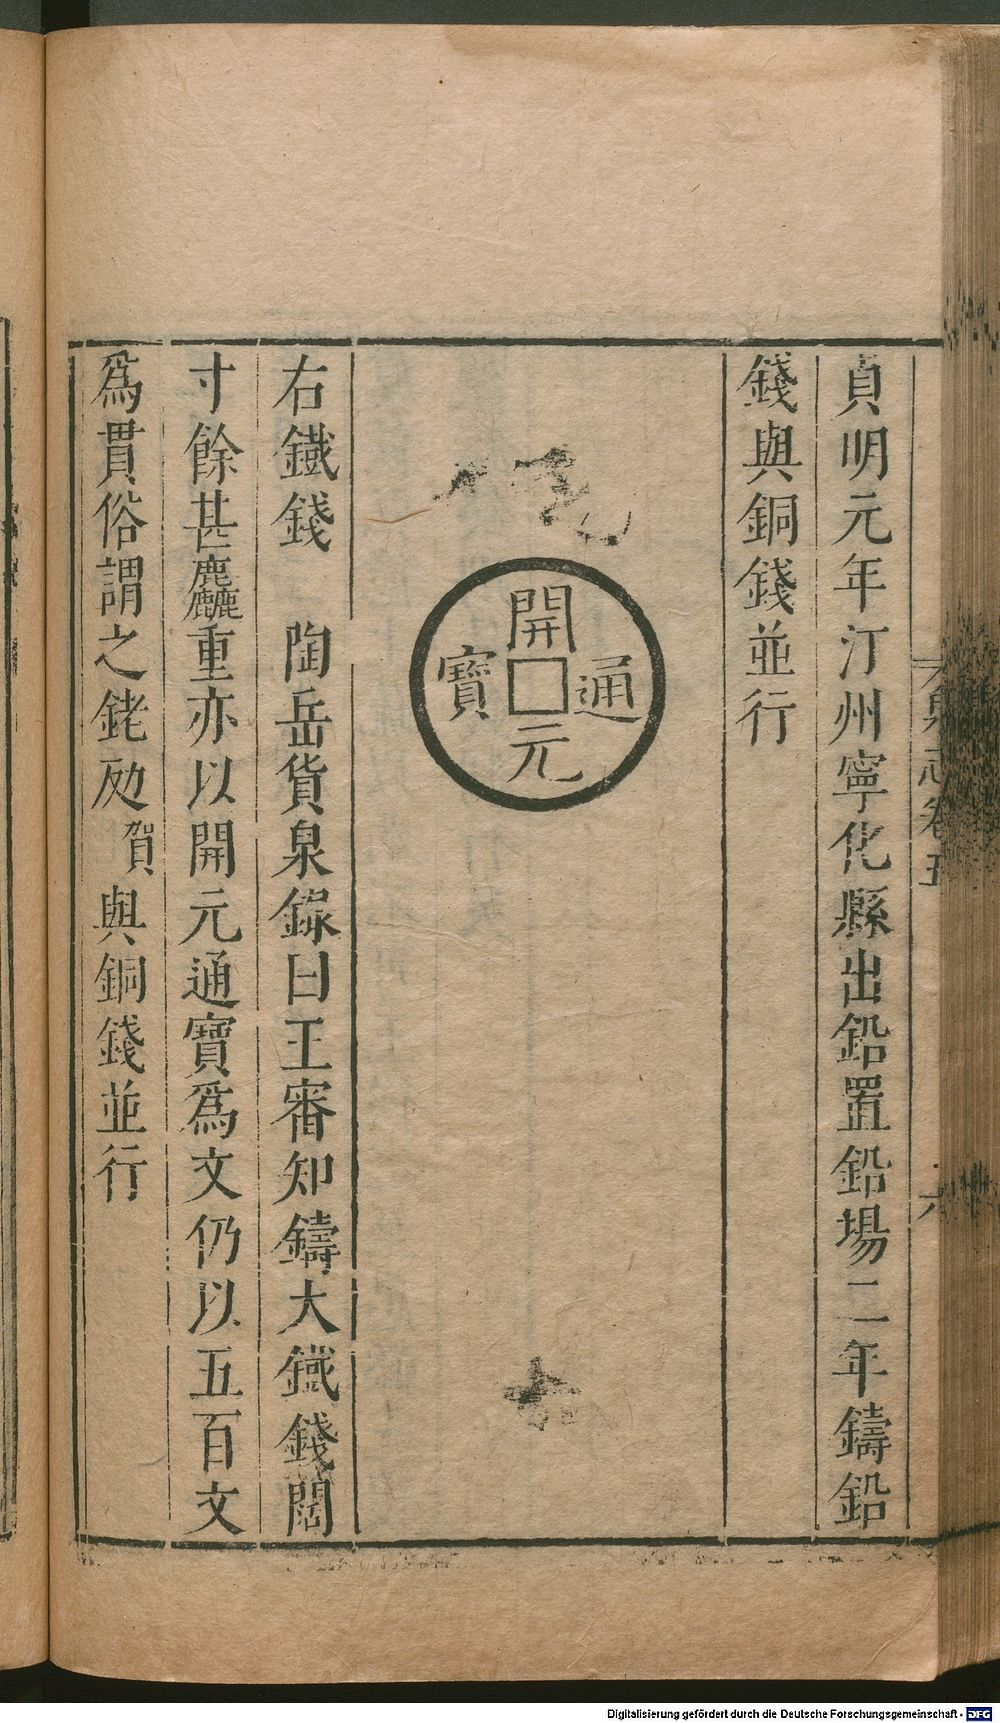 泉志卷五
六
貞明元年汀州寧化縣出鉛置鉛場二年鑄鉛
錢與銅錢並行
開元通寶
右鐵錢 陶岳貨泉錄曰王審知鑄大鐵錢闊
寸餘甚麤重亦以開元通寶爲文仍以五百文
爲貫俗謂之銠𠡠賀與銅錢並行
Digitalisierung gefördert durch die Deutsche Forschungsgemeinschaft - DFG